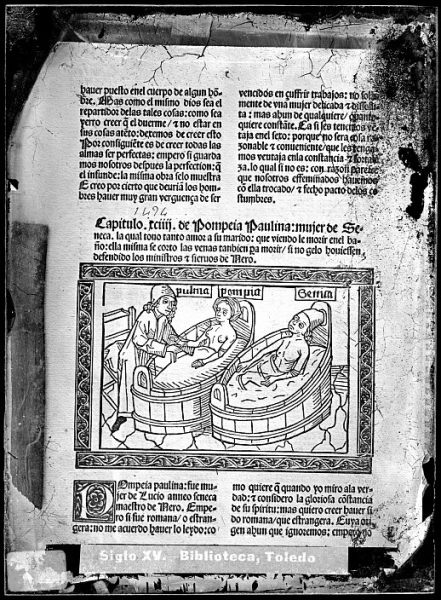 hauer puesto enel cuerpo de algun hō-
bre. Mas como el mismo dios sea el
repartidor de las tales cosas: como sea
yerro creer q̄ el duerme/ τ no estar en
sus cosas atēto: deuemos de creer esto
Por consiguiēte es de creer todas las
almas ser perfectas: empero si guarda
mos nosotros despues la perfection: q̄
el infunde: la misma obra selo muestra
E creo por cierto que deuriā los hom
bres hauer muy gran verguença de ser
vencidos en suffrir trabajos: no sola
mente de vna mujer delicada τ
: mas ahun de qualquiere
quiere constāte. Ca si les tenemos vē
taja enel seso: porque no sera cosa ra-
zonable τ conueniente/ que les tenga
mos ventaja enla constancia τ fortale
za. lo qual si no es: con razon parece
que nosotros effeminados hauemos
con ella trocado/ τ fecho pacto de los co
stumbres.
1494
Capitulo. xciiij. de Pompeia Paulina: mujer de Se-
neca. la qual touo tanto amor a su marido: que viendo le morir enel ba-
ño: ella misma se corto las venas tanbien pa morir/ si no gelo houiessen
defendido los ministros τ sieruos de Nero.
pulina pompia Seneca
POmpeia paulina: fue mu-
jer de Lucio anneo seneca
maestro de Nero. Empe-
ro si fue romana/ o estran
gera: no me acuerdo hauer lo leydo: co
mo quiere q̄ quando yo miro ala ver-
dad: τ considero la gloriosa cōstancia
de su spiritu: mas quiero creer hauer si
do romana/ que estrangera. Cuya ori
gen ahun que ignoremos: empero no
Siglo XV. Biblioteca, Toledo